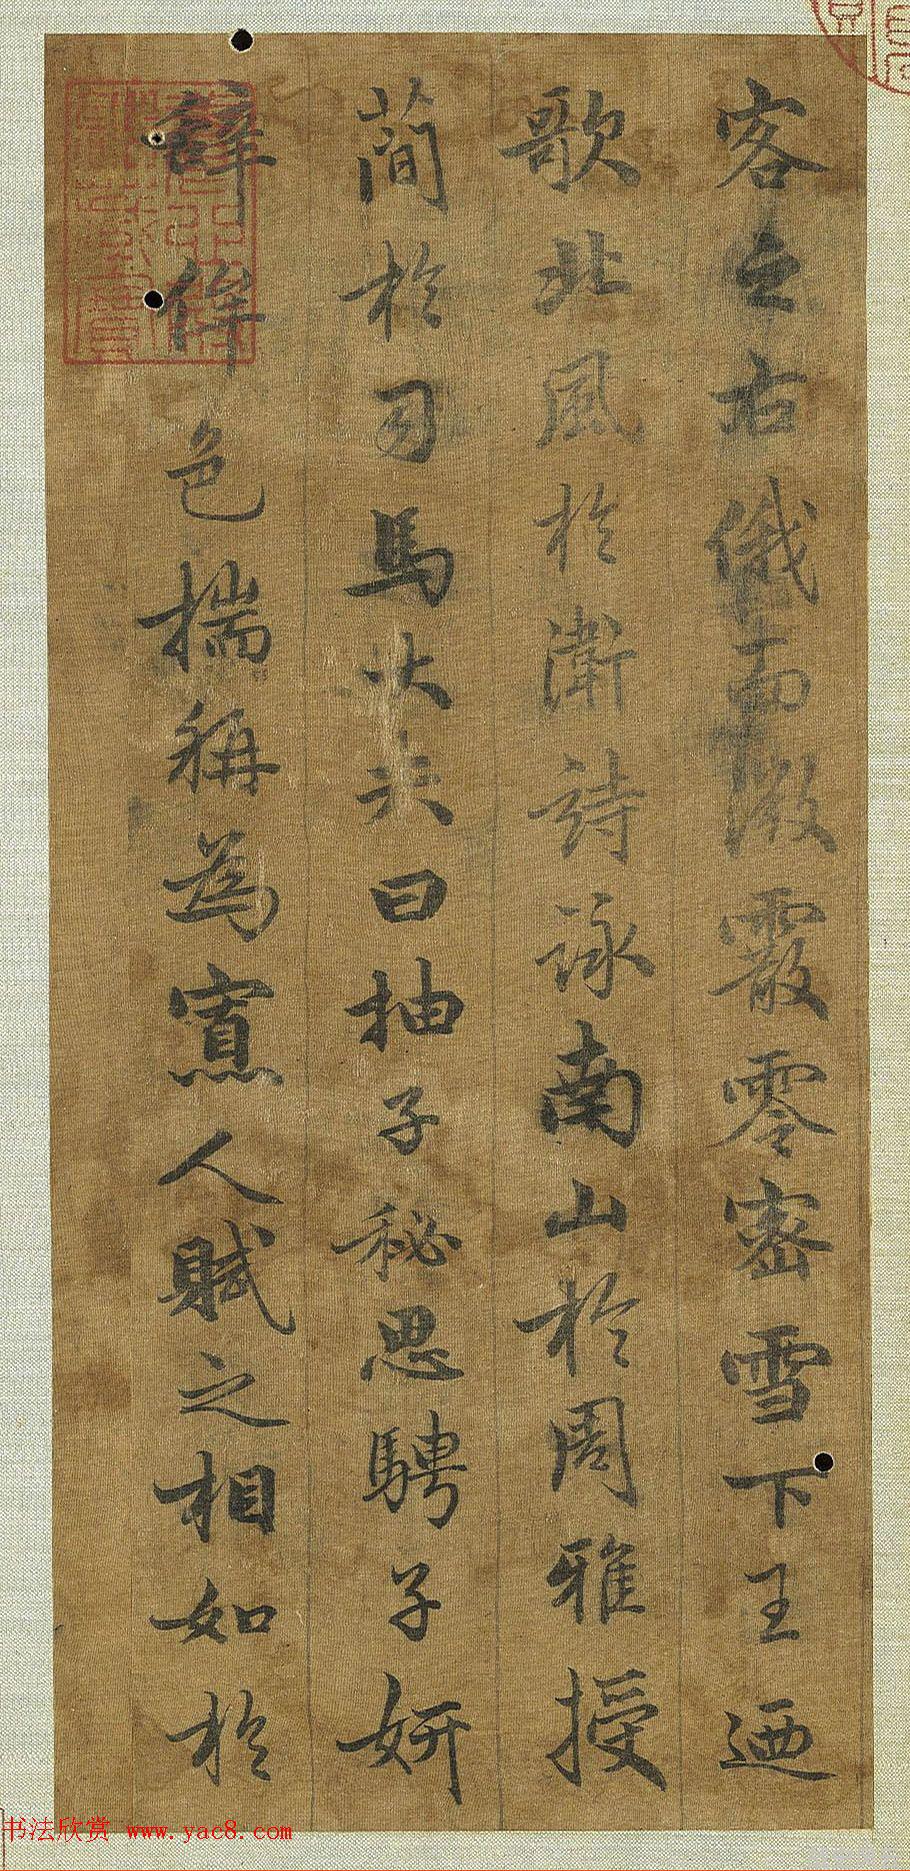 客之右俄而微霰零密雪下王迺
歌北風於衛詩詠南山於周雅授
蕳於司馬大夫曰抽子秘思騁子妍
辭侔色揣稱為賔人賦之相如於
书法欣赏 www.yac8.com